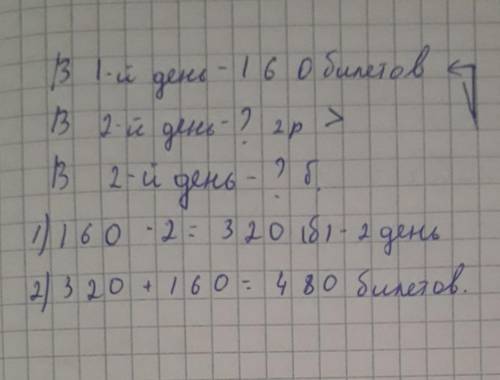 В 1-й день - 160 билетов
В 2-й день - ? 2р >
В 2-й день - ? б.
1) 160 · 2 = 320 (б) - 2 день
2) 320 + 160 = 480 билетов.